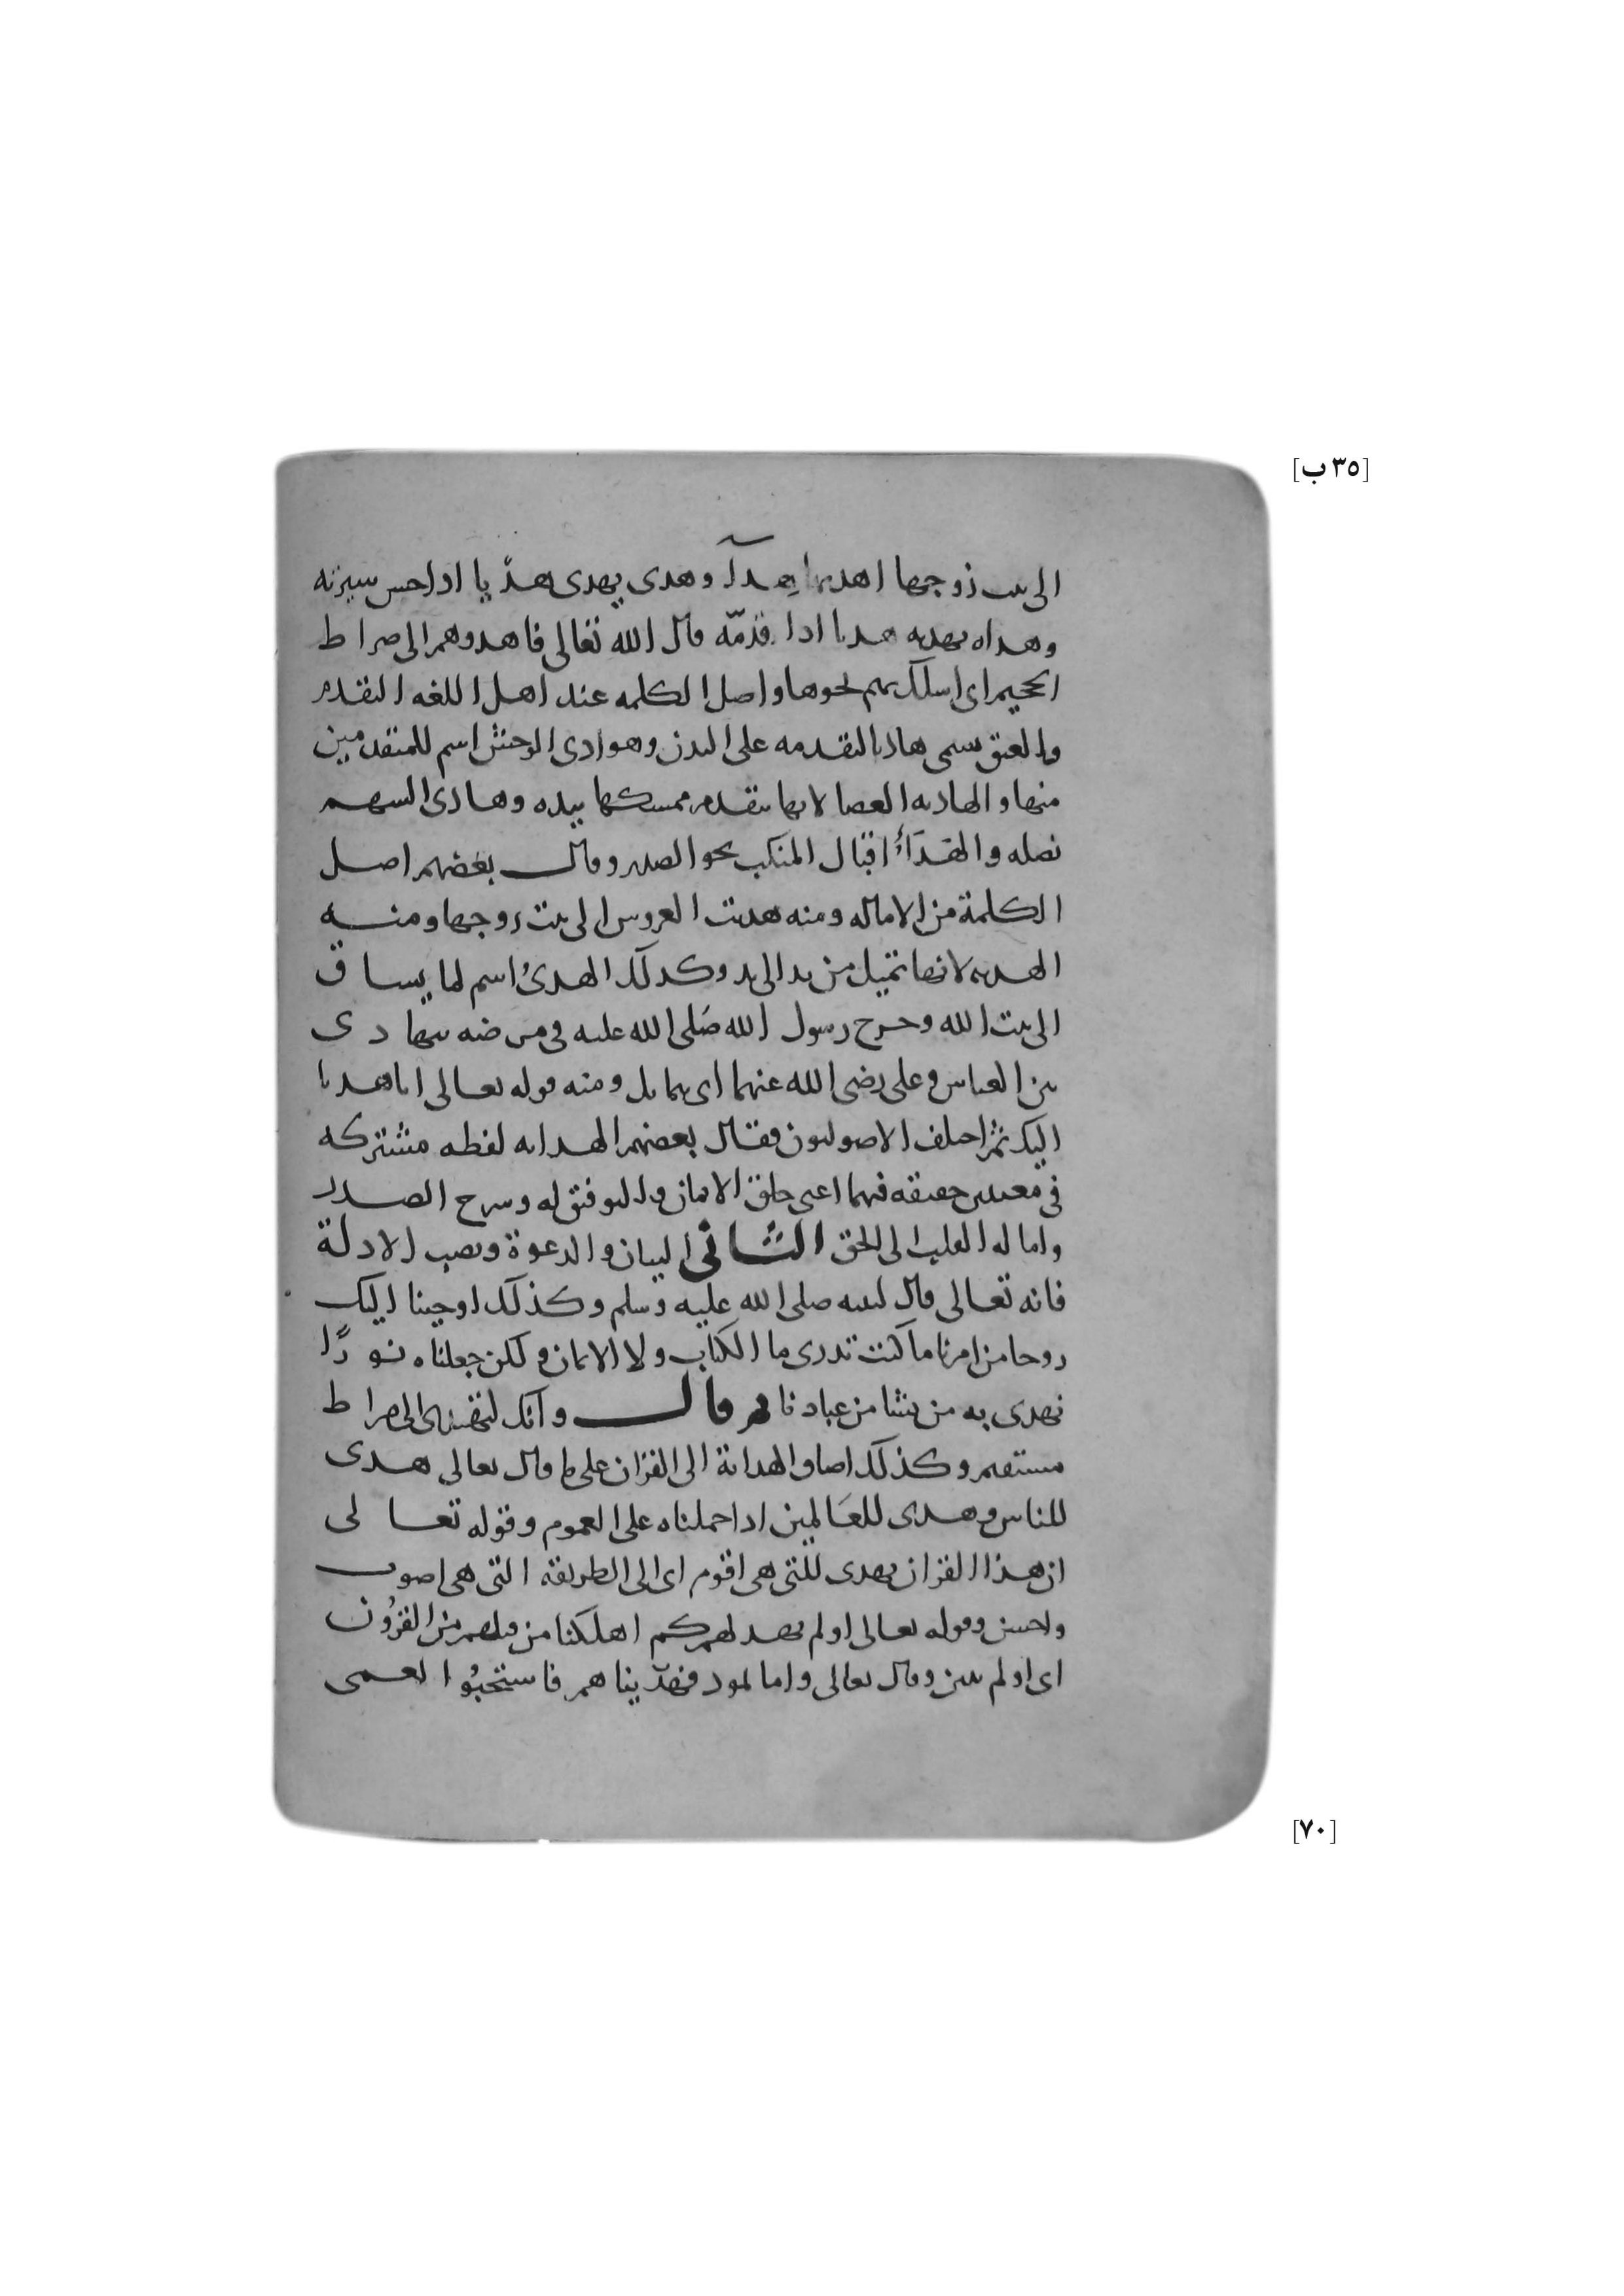 [٣٥ ب]
الى بيت زوجها اهديها هداءً وهدى يهدى هديا اذا حسن سيرته
وهداه يهديه هديا اذا قدمّه قال الله تعالى فاهدوهم الى صراط
الجحيم اى اسلك بهم نحوها واصل الكلمه عند اهل اللغه التقدم
والعنق سمى هاديا لتقدمه على البدن وهوادى الوحش اسم للمتقدمين
منها والهاديه العصا لانها تتقدم ممسكها بيده وهادى السهم
نصله والهَدَأُ اقبال المنكب نحو الصدر وقال بعضهم اصل
الكلمة من الاماله ومنه هديت العروس الى بيت زوجها ومنه
الهديه لانها تميل من يد الى يد وكذلك الهدىُ اسم لما يساق
الى بيت الله وخرج رسول الله صَلى الله عليه فى مرضه يتهادى
بين العباس وعلى رضى الله عنهما اى يتمايل ومنه قوله تعالى انا هدنا
اليك ثم اختلف الاصوليون فقال بعضهم الهدايه لفظه مشتركه
فى معنيين حقيقه فيهما اعنى خلق الايمان والتوفيق له وشرح الصدر
وامالة القلب الى الحق الثَّانى البيان والدعوة ونصب الادلة
فانه تعالى قال لنبيه صلى الله عليه وسلم وكذلك اوحينا اليك
روحا من امرنا ما كنت تدرى ما الكتاب ولا الايمان ولكن جعلناه نورًا
نهدى به من نشا من عبادنا ثم قال وانك لتهدى الى صراط
مستقيم وكذلك اضاف الهداية الى القران على ما قال تعالى هدى
للناس وهدى للعَالمين اذا حملناه على العموم وقوله تعالى
ان هذا القران يهدى للتى هى اقوم اى الى الطريقه التى هى اصوب
واحسن وقوله تعالى اولم يهد لهم كم اهلكنا من قبلهم من القرُون
اى اولم يبين وقال تعالى واما ثمود فهدَيناهم فاستحبُوا العمى
[٧٠]